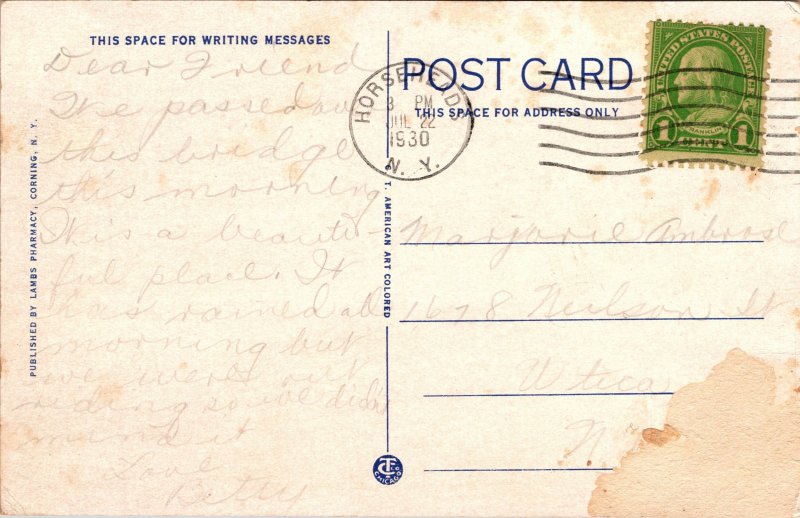 THIS SPACE FOR WRITING MESSAGES
Dear Friend
We passed over
this bridge
this morning
It is a beauti-
ful place. It
has rained all
morning but
we were out
riding so we didn't
mind it
Love
Betty
PUBLISHED BY LAMBS PHARMACY, CORNING, N. Y.
C. T. AMERICAN ART COLORED
POST CARD
THIS SPACE FOR ADDRESS ONLY
HORSEHEADS
3 PM
JUL 22
1930
N. Y.
UNITED STATES POSTAGE
FRANKLIN
1 1
Marjorie Ambrose
1678 Neilson St
Utica
N
CHICAGO